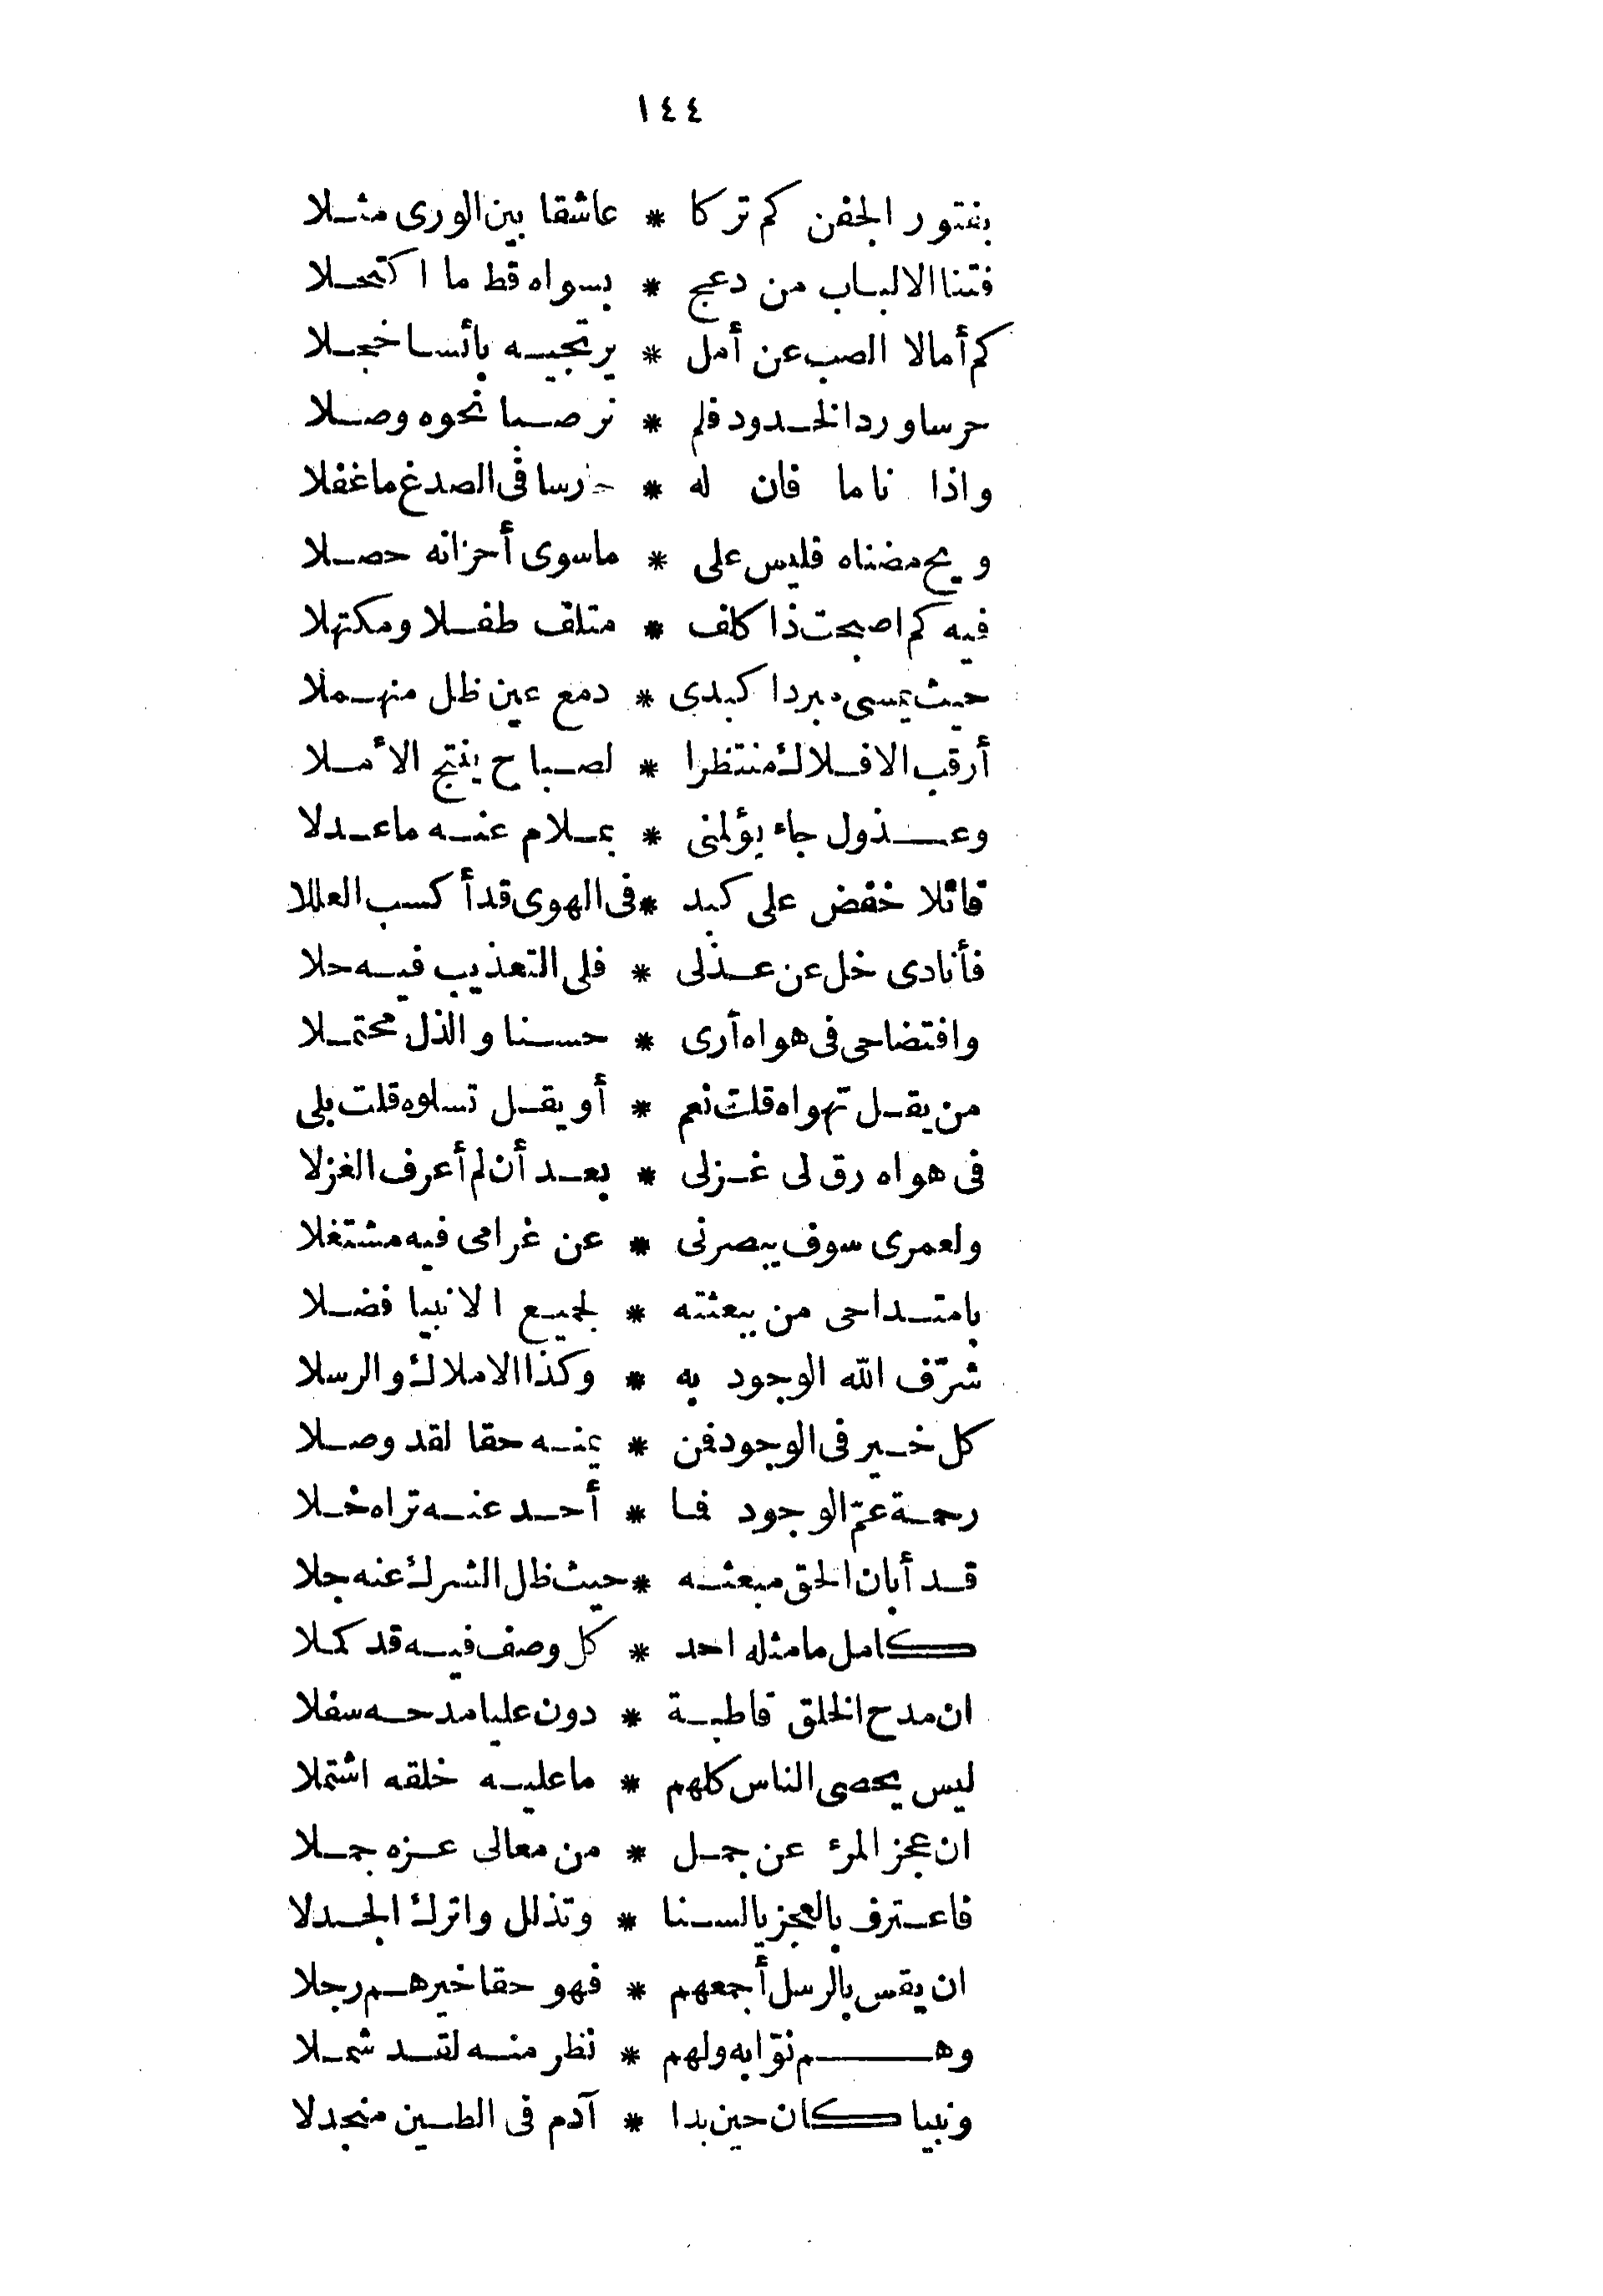 ١٤٤
بفتور الجفن كم تركا * عاشقا بين الورى مثلا
فتنا الالباب من دعج * بسواه قط ما اكتحلا
كم أمالا الصب عن أمل * يرتجيه بائسا خجلا
حرسا ورد الخدود فلم * نر صبا نحوه وصلا
واذا ناما فان له * حرسا فى الصدغ ما غفلا
ويح مضناه فليس على * ما سوى أحزانه حصلا
فيه كم اصبحت ذا كلف * متلف طفلا ومكتهلا
حيث يمسى مبردا كبدى * دمع عين ظل منهملا
أرقب الافلاك منتظرا * لصباح ينتج الأملا
وعذول جاء يؤلمنى * بملام عنه ما عدلا
قائلا خفض على كبد * فى الهوى قد أكسب العللا
فأنادى خل عن عذلى * فلى التعذيب فيه حلا
وافتضاحى فى هواه أرى * حسنا والذل محتملا
من يقل تهواه قلت نعم * أو يقل تسلوه قلت بلى
فى هواه رق لى غزلى * بعد أن لم أعرف الغزلا
ولعمرى سوف يبصرنى * عن غرامى فيه مشتغلا
بامتداحى من ببعثته * لجميع الانبيا فضلا
شرّف الله الوجود به * وكذا الاملاك والرسلا
كل خير فى الوجود فمن * يمنه حقا لقد وصلا
رحمة عمّ الوجود فما * أحد عنه تراه خلا
قد أبان الحق مبعثه * حيث ظل الشرك عنه جلا
كامل ما مثله احد * كل وصف فيه قد كملا
ان مدح الخلق قاطبة * دون عليا مدحه سفلا
ليس يحصى الناس كلهم * ما عليه خلقه اشتملا
ان عجز المرء عن جمل * من معالى عزه جملا
فاعترف بالعجز يا لسنا * وتذلل واترك الجدلا
ان يقس بالرسل أجمعهم * فهو حقا خيرهم رجلا
وهم نوّابه ولهم * نظر منه لقد شملا
ونبيا كان حين بدا * آدم فى الطين منجدلا